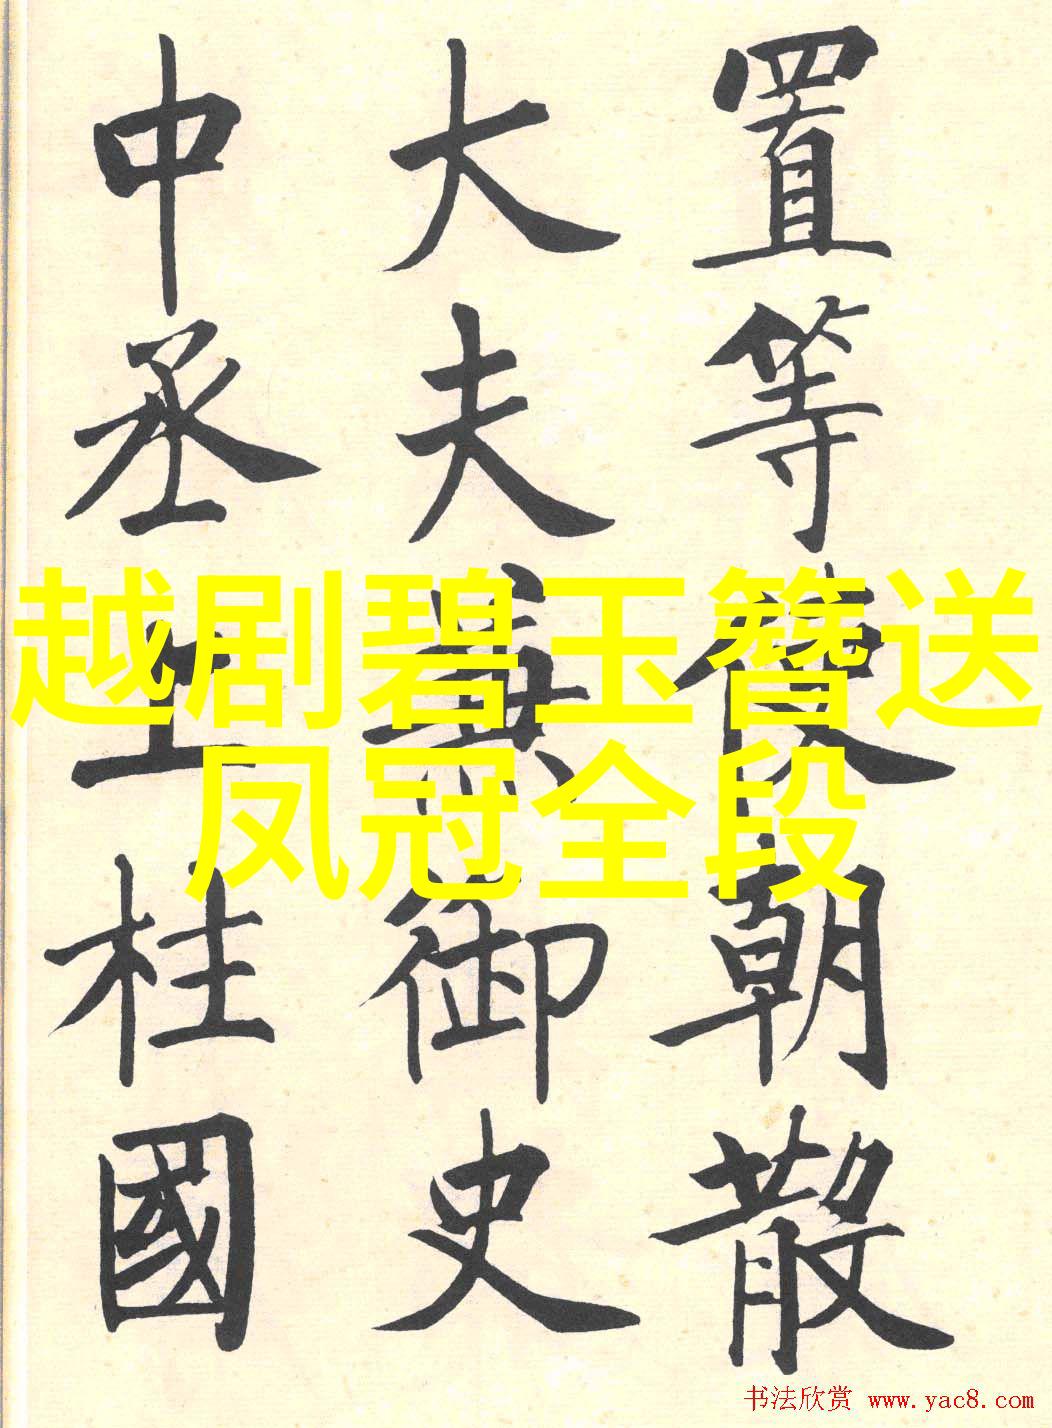 置等使朝散
大夫兼御史
中丞上柱國
越剧碧玉簪送
凤冠全段
书法欣赏 www.yac8.com